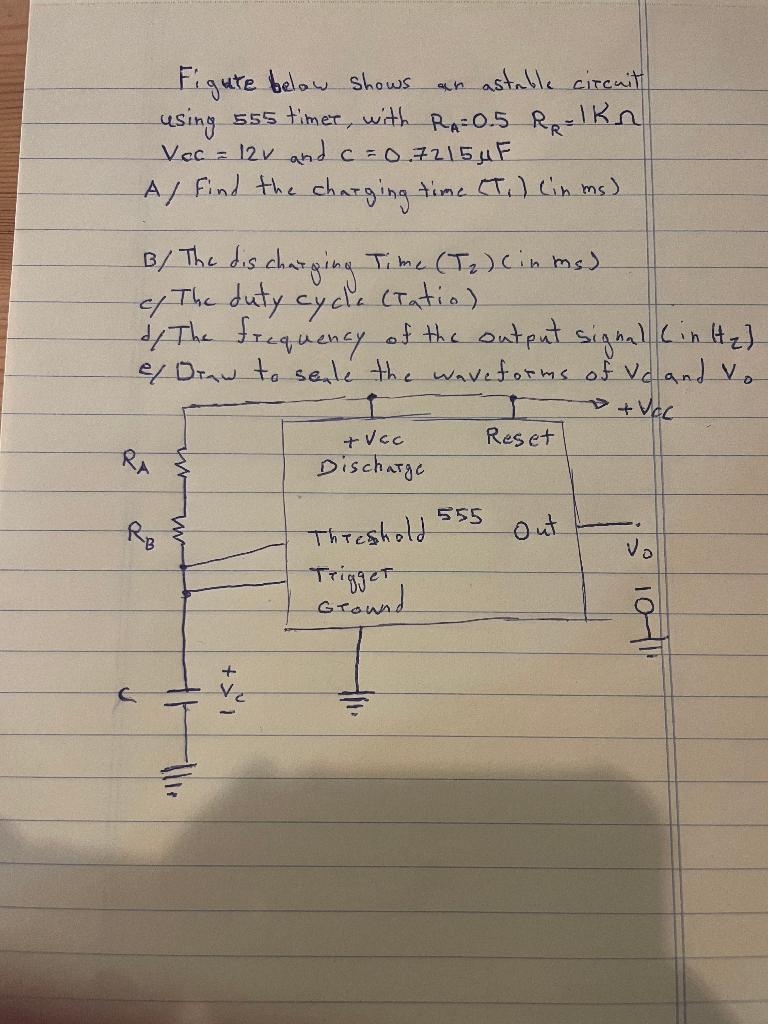 Figure below shows an astable circuit
using 555 timer, with RA=0.5 RR=1KΩ
Vcc = 12v and c = 0.7215μF
A/ Find the charging time (T1) (in ms)
B/ The discharging Time (T2) (in ms)
c/ The duty cycle (ratio)
d/ The frequency of the output signal (in Hz)
e/ Draw to scale the waveforms of Vc and Vo
+Vcc
+Vcc Reset
RA
Discharge
555
RB
Threshold Out
Vo
Trigger
Ground
+
C Vc
-